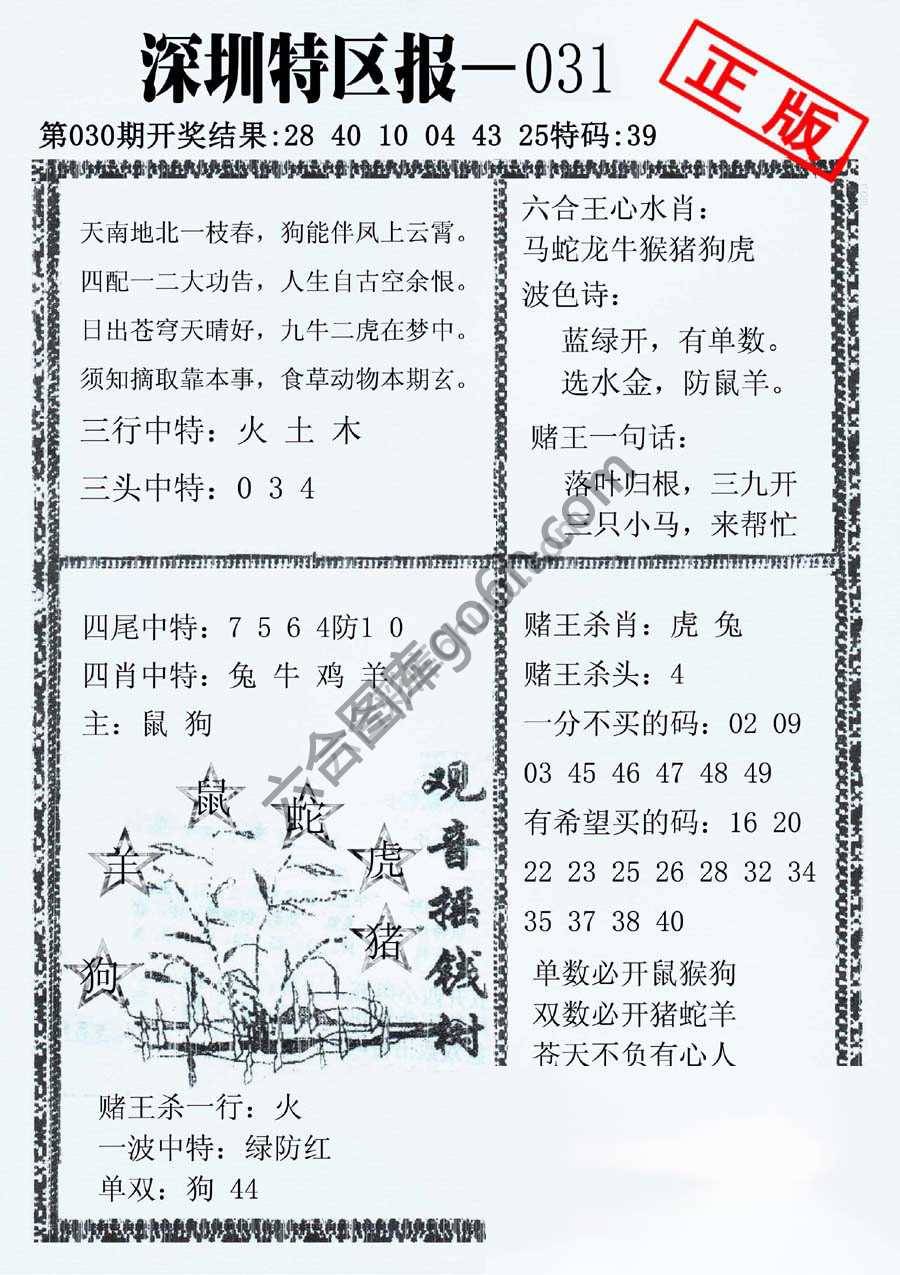 深圳特区报—031
正版
第030期开奖结果:28 40 10 04 43 25特码:39
天南地北一枝春，狗能伴凤上云霄。
四配一二大功告，人生自古空余恨。
日出苍穹天晴好，九牛二虎在梦中。
须知摘取靠本事，食草动物本期玄。
三行中特：火 土 木
三头中特：0 3 4
六合王心水肖：
马蛇龙牛猴猪狗虎
波色诗：
蓝绿开，有单数。
选水金，防鼠羊。
赌王一句话：
落叶归根，三九开
三只小马，来帮忙
四尾中特：7 5 6 4防1 0
四肖中特：兔 牛 鸡 羊
主：鼠 狗
鼠
蛇
羊
虎
猪
狗
观音摇钱树
赌王杀一行：火
一波中特：绿防红
单双：狗 44
赌王杀肖：虎 兔
赌王杀头：4
一分不买的码：02 09
03 45 46 47 48 49
有希望买的码：16 20
22 23 25 26 28 32 34
35 37 38 40
单数必开鼠猴狗
双数必开猪蛇羊
苍天不负有心人
六合图库go6h.com